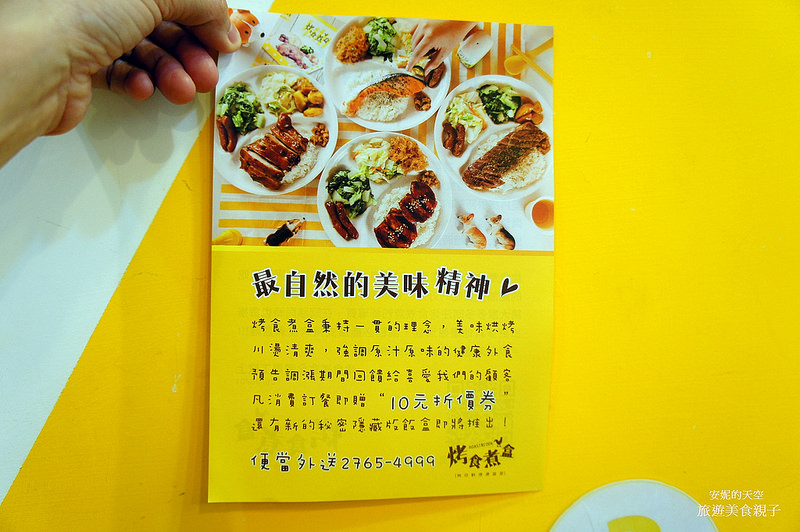 最自然的美味精神
烤食煮盒秉持一貫的理念，美味烘烤
川燙清爽，強調原汁原味的健康外食
預告調漲期間回饋給喜愛我們的顧客
凡消費訂餐即贈“10元折價券”
還有新的秘密隱藏版飯盒即將推出！
便當外送2765-4999
烤食煮盒
安妮的天空
旅遊美食親子